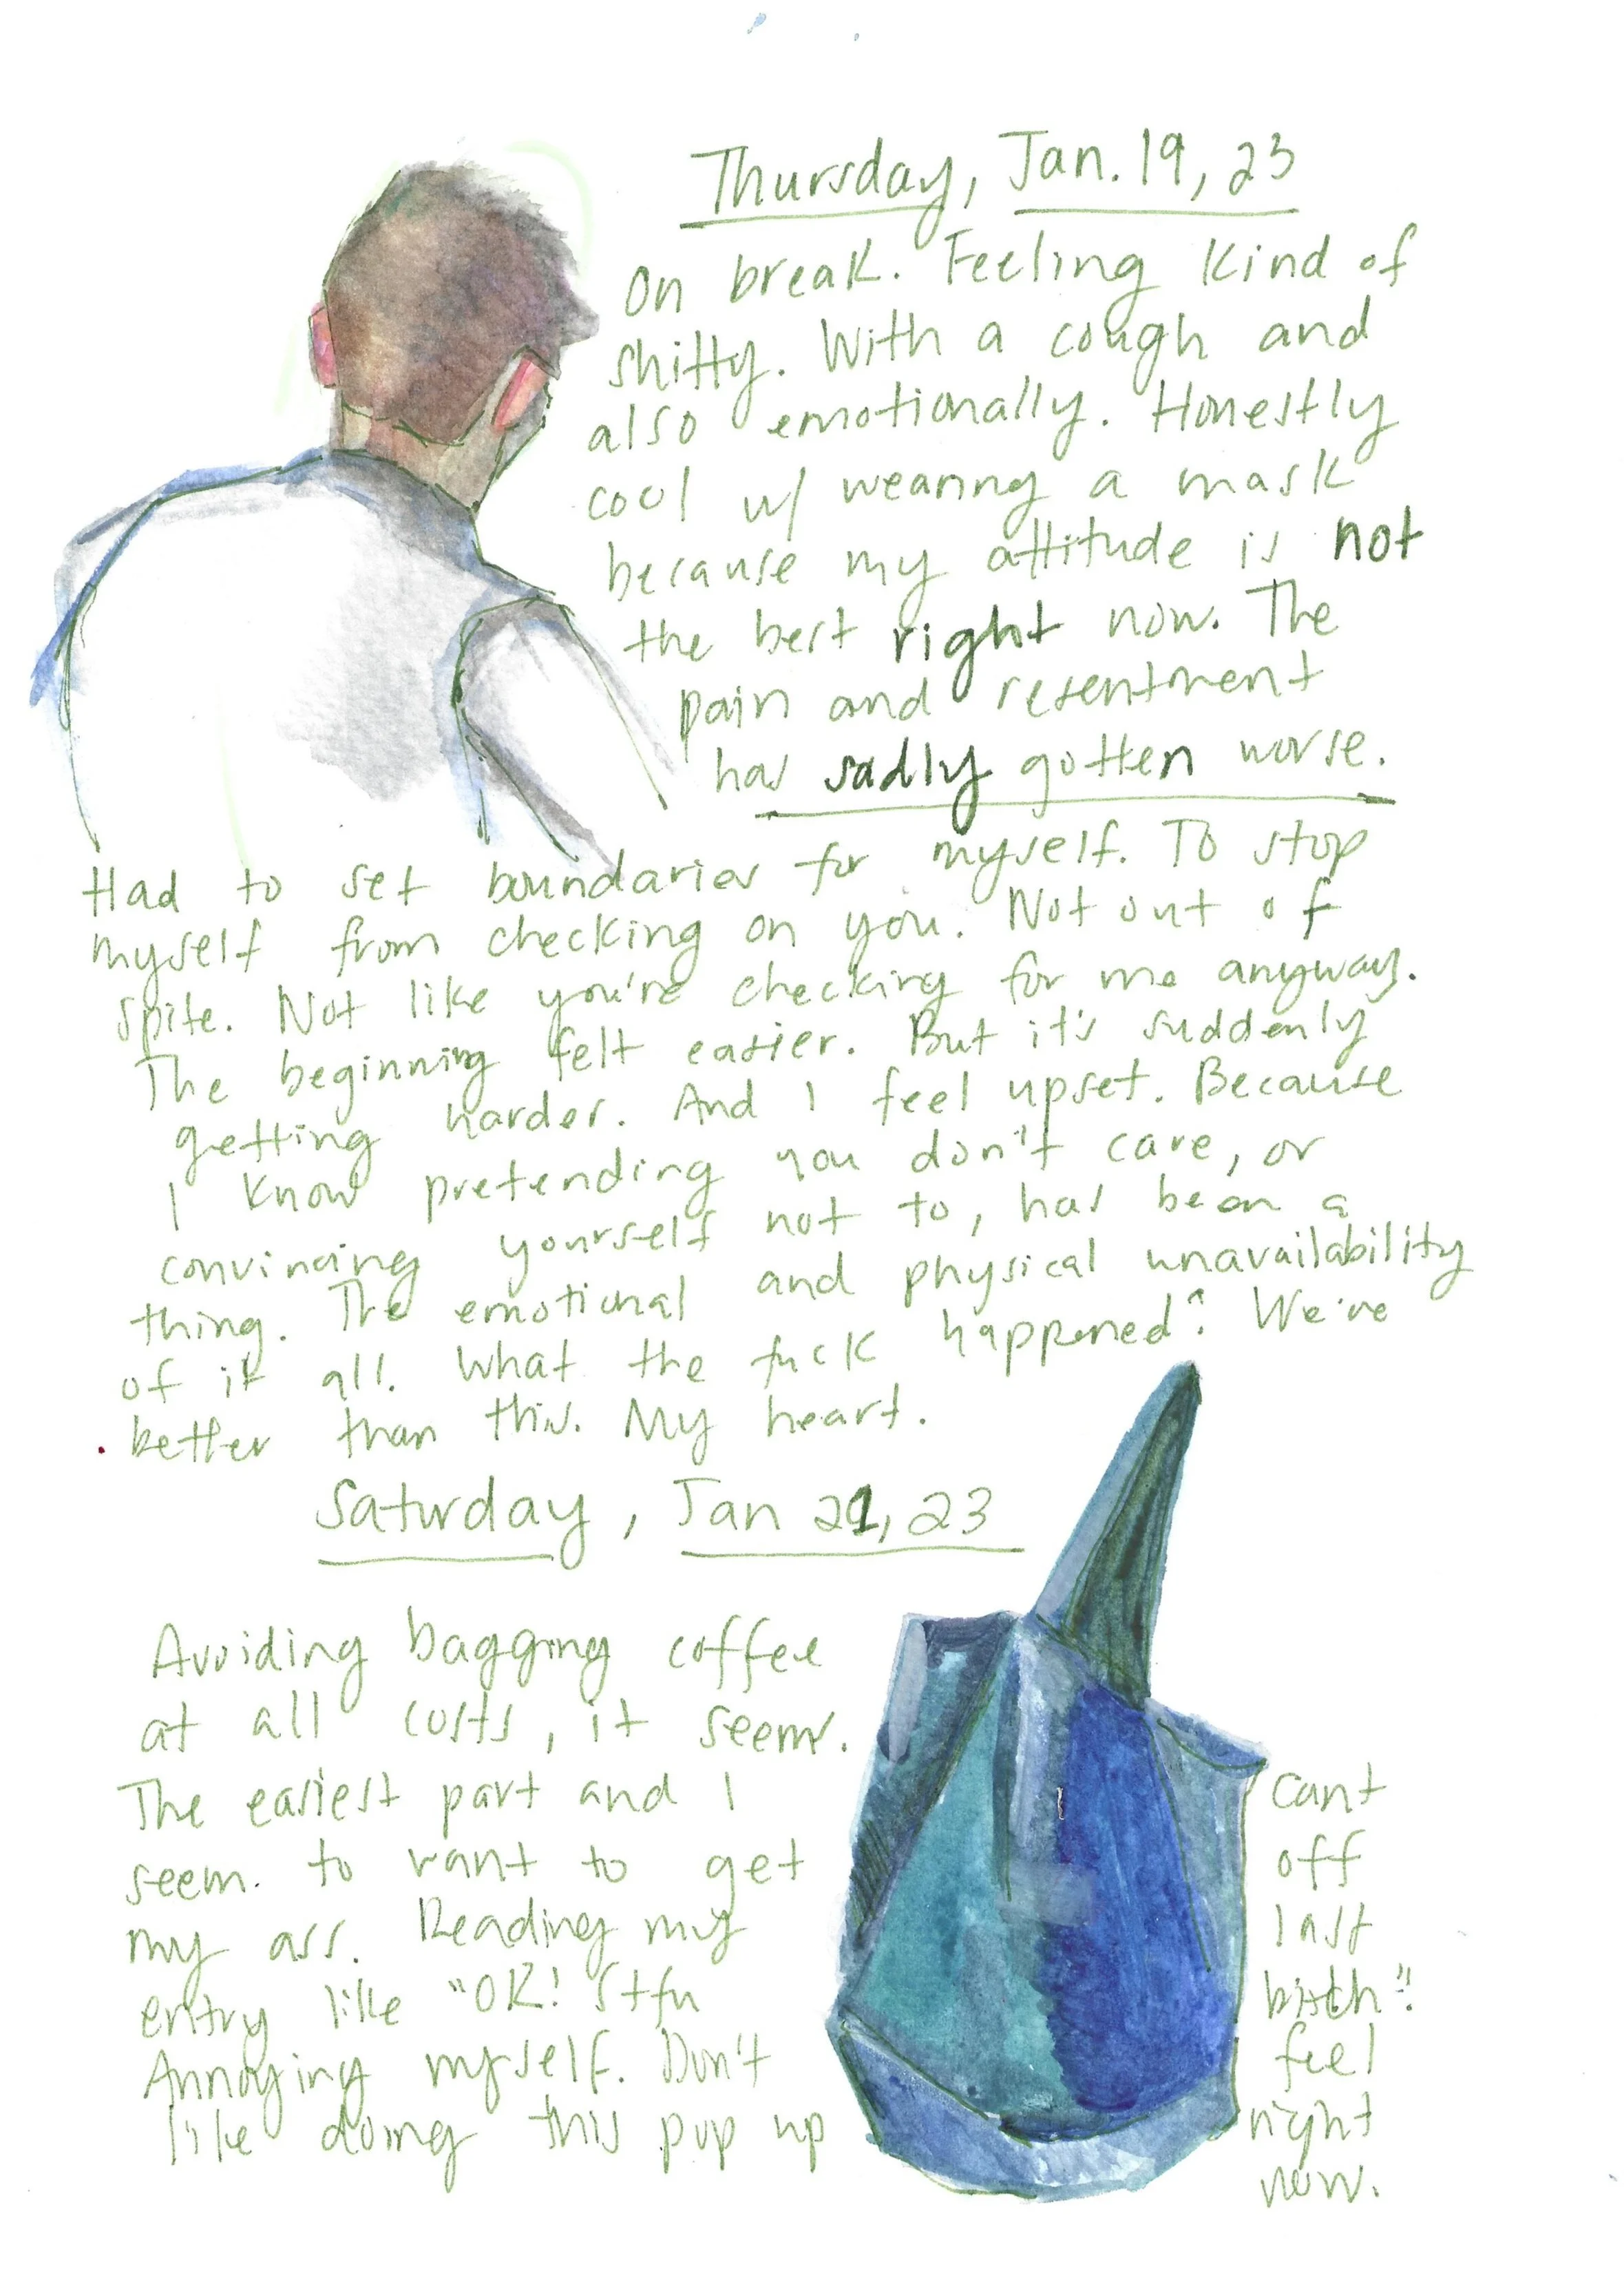 Thursday, Jan. 19, 23
On break. Feeling kind of
shitty. With a cough and
also emotionally. Honestly
cool w/ wearing a mask
because my attitude is not
the best right now. The
pain and resentment
has sadly gotten worse.
Had to set boundaries for myself. To stop
myself from checking on you. Not out of
spite. Not like you're checking for me anyway.
The beginning felt easier. But it's suddenly
getting harder. And I feel upset. Because
I know pretending you don't care, or
convincing yourself not to, has been a
thing. The emotional and physical unavailability
of it all. What the fuck happened? We've
better than this. My heart.
Saturday, Jan 21, 23
Avoiding bagging coffee
at all costs, it seems.
The easiest part and I cant
seem to want to get off
my ass. Reading my last
entry like "OK! Stfu bitch".
Annoying myself. Don't feel
like doing this pop up right
now.